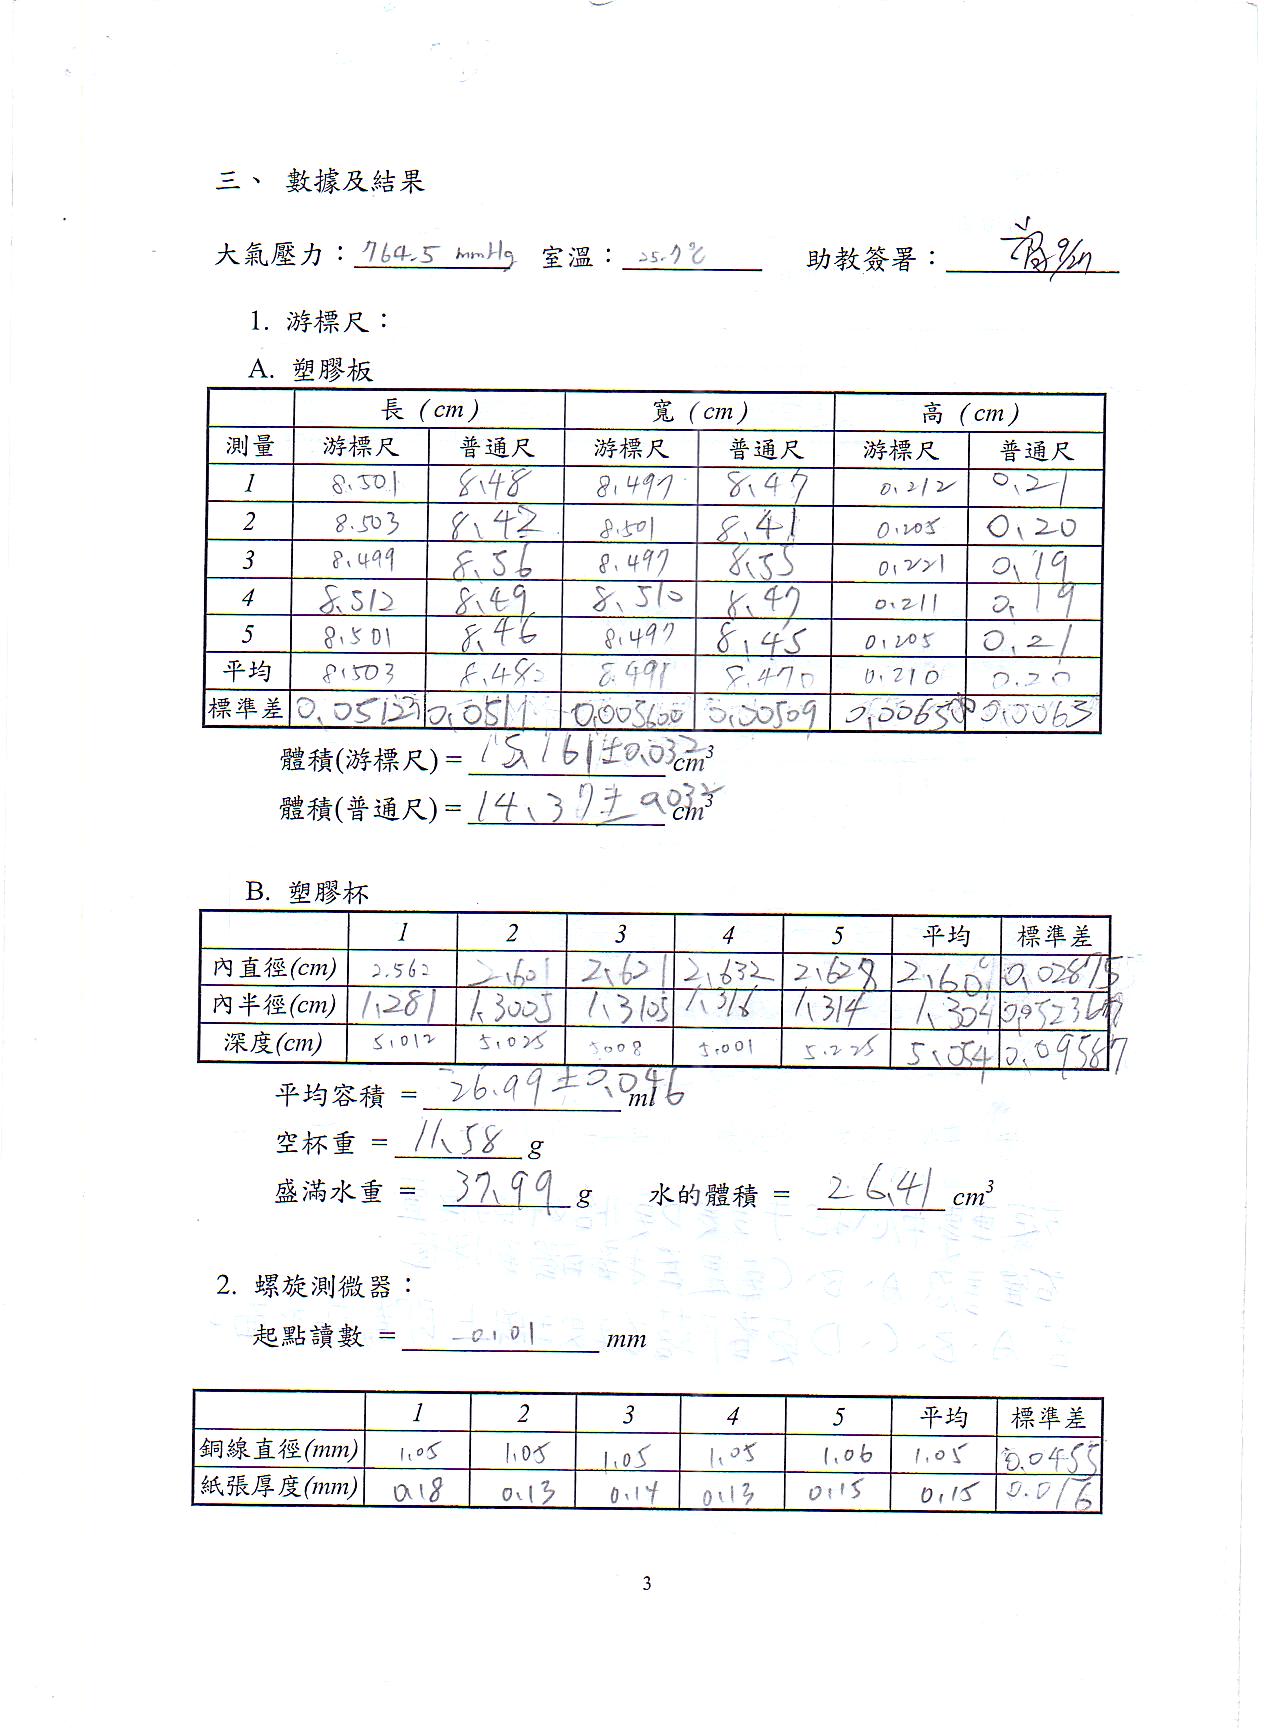 三、 數據及結果
大氣壓力：764.5 mmHg 室溫：25.7℃ 助教簽署： 9/27
1. 游標尺：
A. 塑膠板
長 (cm) 寬 (cm) 高 (cm)
測量 游標尺 普通尺 游標尺 普通尺 游標尺 普通尺
1 8.501 8.48 8.497 8.47 0.212 0.21
2 8.503 8.42 8.501 8.41 0.205 0.20
3 8.499 8.56 8.497 8.55 0.221 0.19
4 8.512 8.49 8.510 8.47 0.211 0.19
5 8.501 8.46 8.497 8.45 0.205 0.21
平均 8.503 8.482 8.498 8.470 0.210 0.20
標準差 0.05123 0.0511 0.005600 0.00509 0.00650 0.0063
體積(游標尺) = 15.161±0.032 cm³
體積(普通尺) = 14.37± 0.032 cm³
B. 塑膠杯
1 2 3 4 5 平均 標準差
內直徑(cm) 2.562 2.601 2.621 2.632 2.628 2.609 0.02875
內半徑(cm) 1.281 1.3005 1.3105 1.316 1.314 1.304
深度(cm) 5.012 5.025 5.008 5.001 5.225 5.054 0.09587
平均容積 = 26.99±0.046 ml
空杯重 = 11.58 g
盛滿水重 = 37.99 g 水的體積 = 26.41 cm³
2. 螺旋測微器：
起點讀數 = -0.01 mm
1 2 3 4 5 平均 標準差
銅線直徑(mm) 1.05 1.05 1.05 1.05 1.06 1.05 0.0455
紙張厚度(mm) 0.18 0.13 0.14 0.13 0.15 0.15 0.016
3